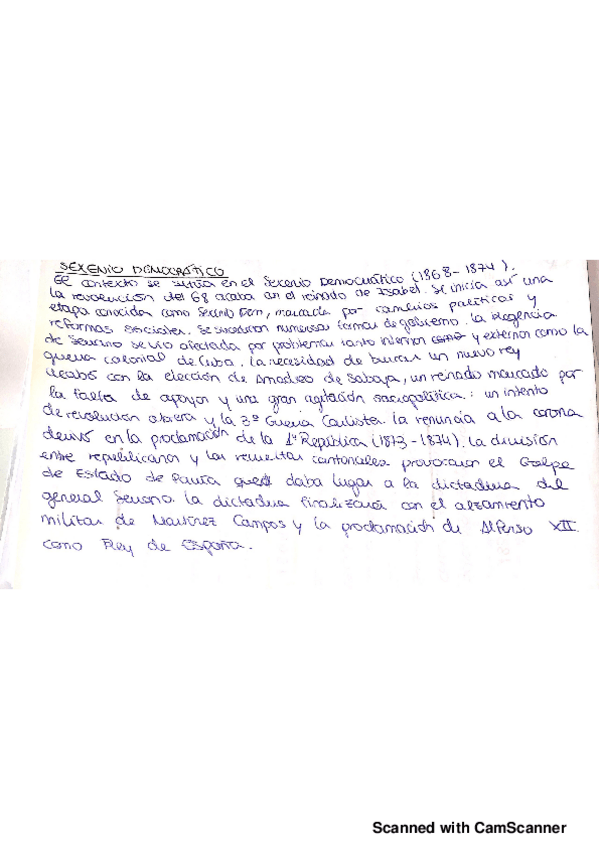 SEXENIO DEMOCRÁTICO
El contexto se sitúa en el Sexenio Democrático (1868-1874).
la revolución del 68 acaba con el reinado de Isabel. Se inicia así una
etapa conocida como Sexenio Dem, marcada por cambios políticos y
reformas sociales. Se sucedieron numerosas formas de gobierno. la Regencia
de Serrano se vio afectada por problemas tanto internos como y externos como la
guerra colonial de Cuba. la necesidad de buscar un nuevo rey
acabó con la elección de Amadeo de Saboya, un reinado marcado por
la falta de apoyos y una gran agitación sociopolítica: un intento
de revolución obrera y la 3ª Guerra Carlista. la renuncia a la corona
derivó en la proclamación de la 1ª República (1873-1874). la división
entre republicanos y las revueltas cantonales provocaron el Golpe
de Estado de Pavía daba lugar a la dictadura del
general Serrano. la dictadura finalizará con el alzamiento
militar de Martínez Campos y la proclamación de Alfonso XII
como Rey de España.
Scanned with CamScanner